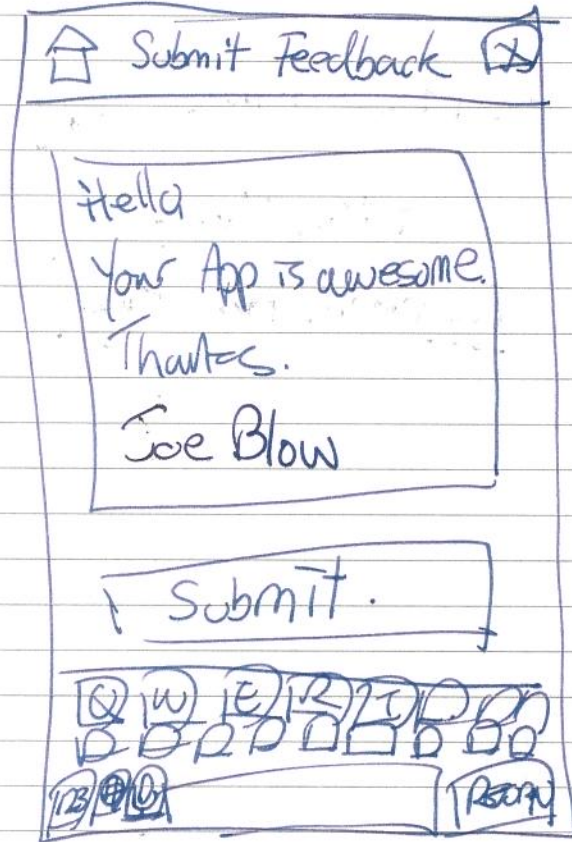 Submit Feedback X
Hello
Your App is awesome.
Thanks.
Joe Blow
Submit.
Q W E R T
123 RETURN